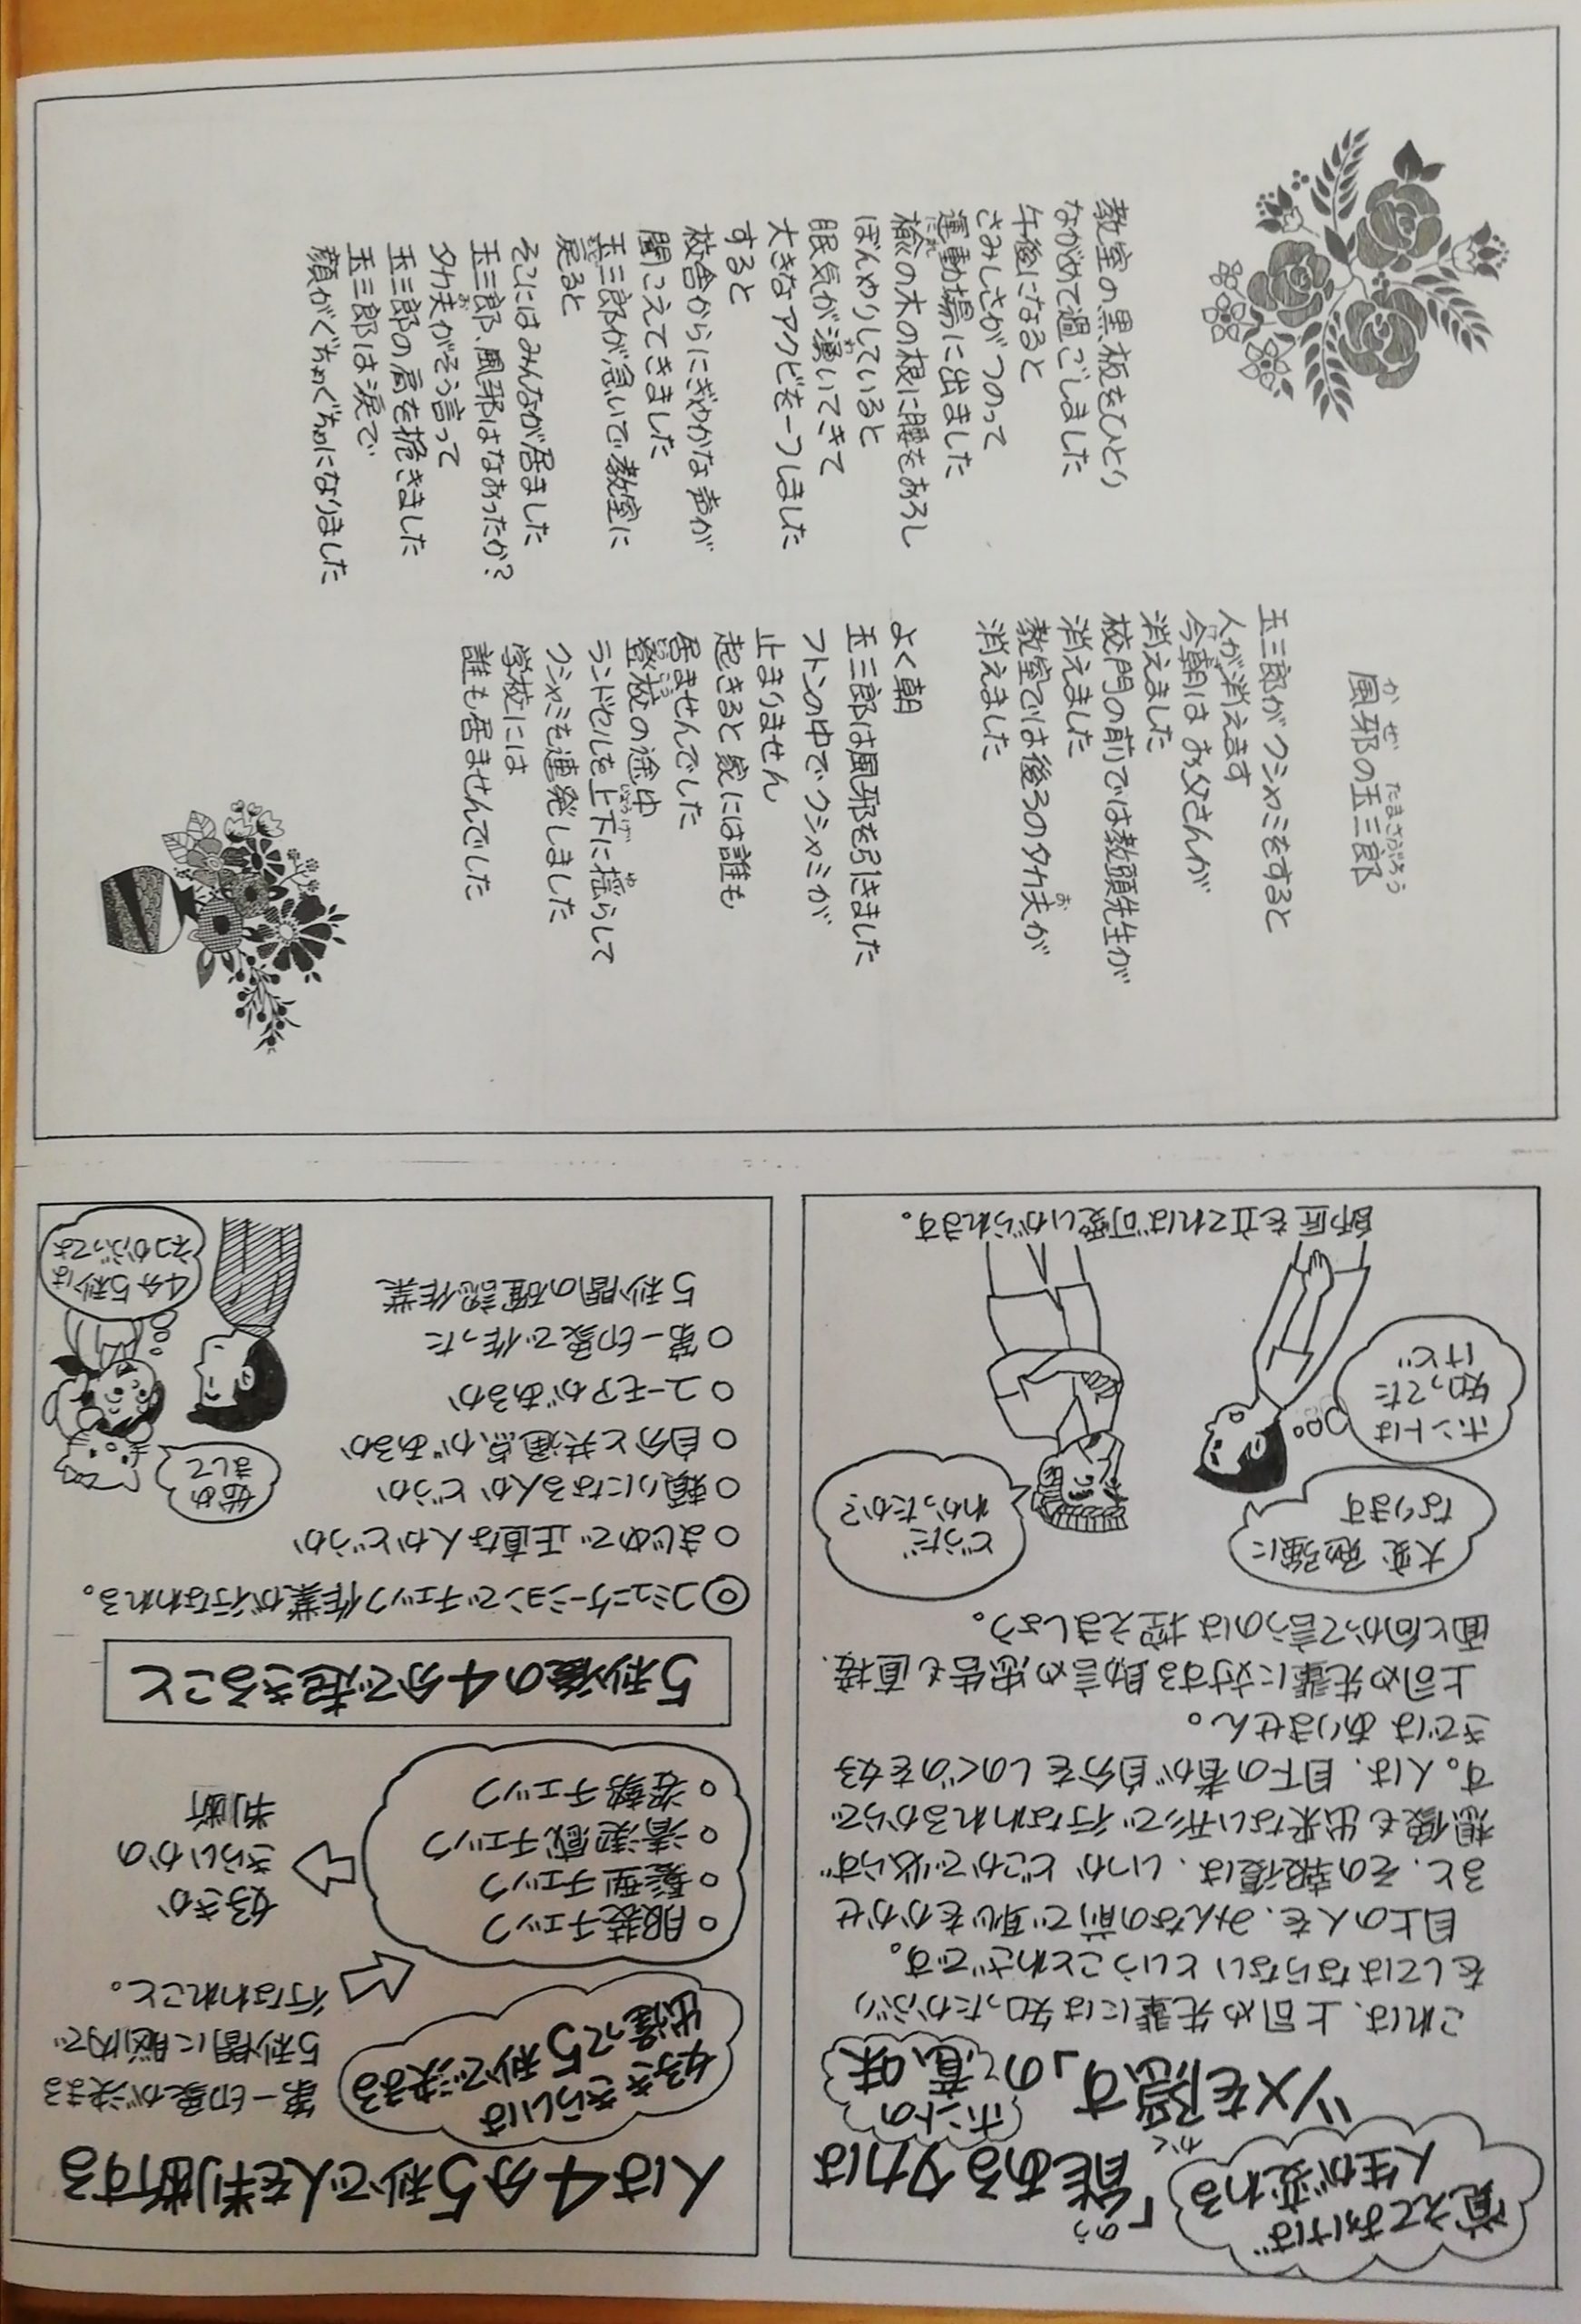 風邪の玉三郎
かぜ
たまさぶろう
玉三郎がクシャミをすると
人が消えます
今朝はお父さんが
消えました
校門の前では教頭先生が
消えました
教室では後ろのタカ夫が
消えました
よく朝
玉三郎は風邪を引きました
フトンの中でクシャミが
止まりません
起きると家には誰も
居ませんでした
登校の途中
ランドセルを上下に揺らして
クシャミを連発しました
学校には
誰も居ませんでした
教室の黒板をひとり
ながめて過ごしました
午後になると
さみしさがつのって
運動場に出ました
楡の木の根に腰をおろし
ぼんやりしていると
眠気が湧いてきて
大きなアクビを一つしました
すると
校舎からにぎやかな声が
聞こえてきました
玉三郎が急いで教室に
戻ると
そこにはみんなが居ました
玉三郎、風邪はなおったか?
タカ夫がそう言って
玉三郎の肩を抱きました
玉三郎は涙で
顔がぐちゃぐちゃになりました
覚えておけば
人生が変わる
「能あるタカは
のう
ツメを隠す」の意味
かく
ホントの
これは、上司や先輩には知ったかぶり
をしてはならないということわざです。
目上の人を、みんなの前で恥をかかせ
ると、その報復は、いつかどこかで必らず
想像も出来ない形で行なわれるからで
す。人は、目下の者が自分をしのぐのを好
きではありません。
上司や先輩に対する助言や忠告も直接、
面と向かって言うのは控えましょう。
大変勉強に
なります
どうだ
わかったか?
ホントは
知ってた
けど
師匠を立てれば可愛いがられます。
人は4分5秒で人を判断する
好ききらいは
出逢って5秒で決まる
第一印象が決まる
5秒間に脳内で
行なわれこと。
○服装チェック
○髪型チェック
○清潔感チェック
○姿勢チェック
好きか
きらいかの
判断
5秒後の4分で起きること
◎コミュニケーションでチェック作業が行なわれる。
○まじめで正直な人かどうか
○頼りになる人かどうか
○自分と共通点があるか
○ユーモアがあるか
○第一印象で作った
5秒間の確認作業
始め
まして
4分5秒は
ネコかぶってよ